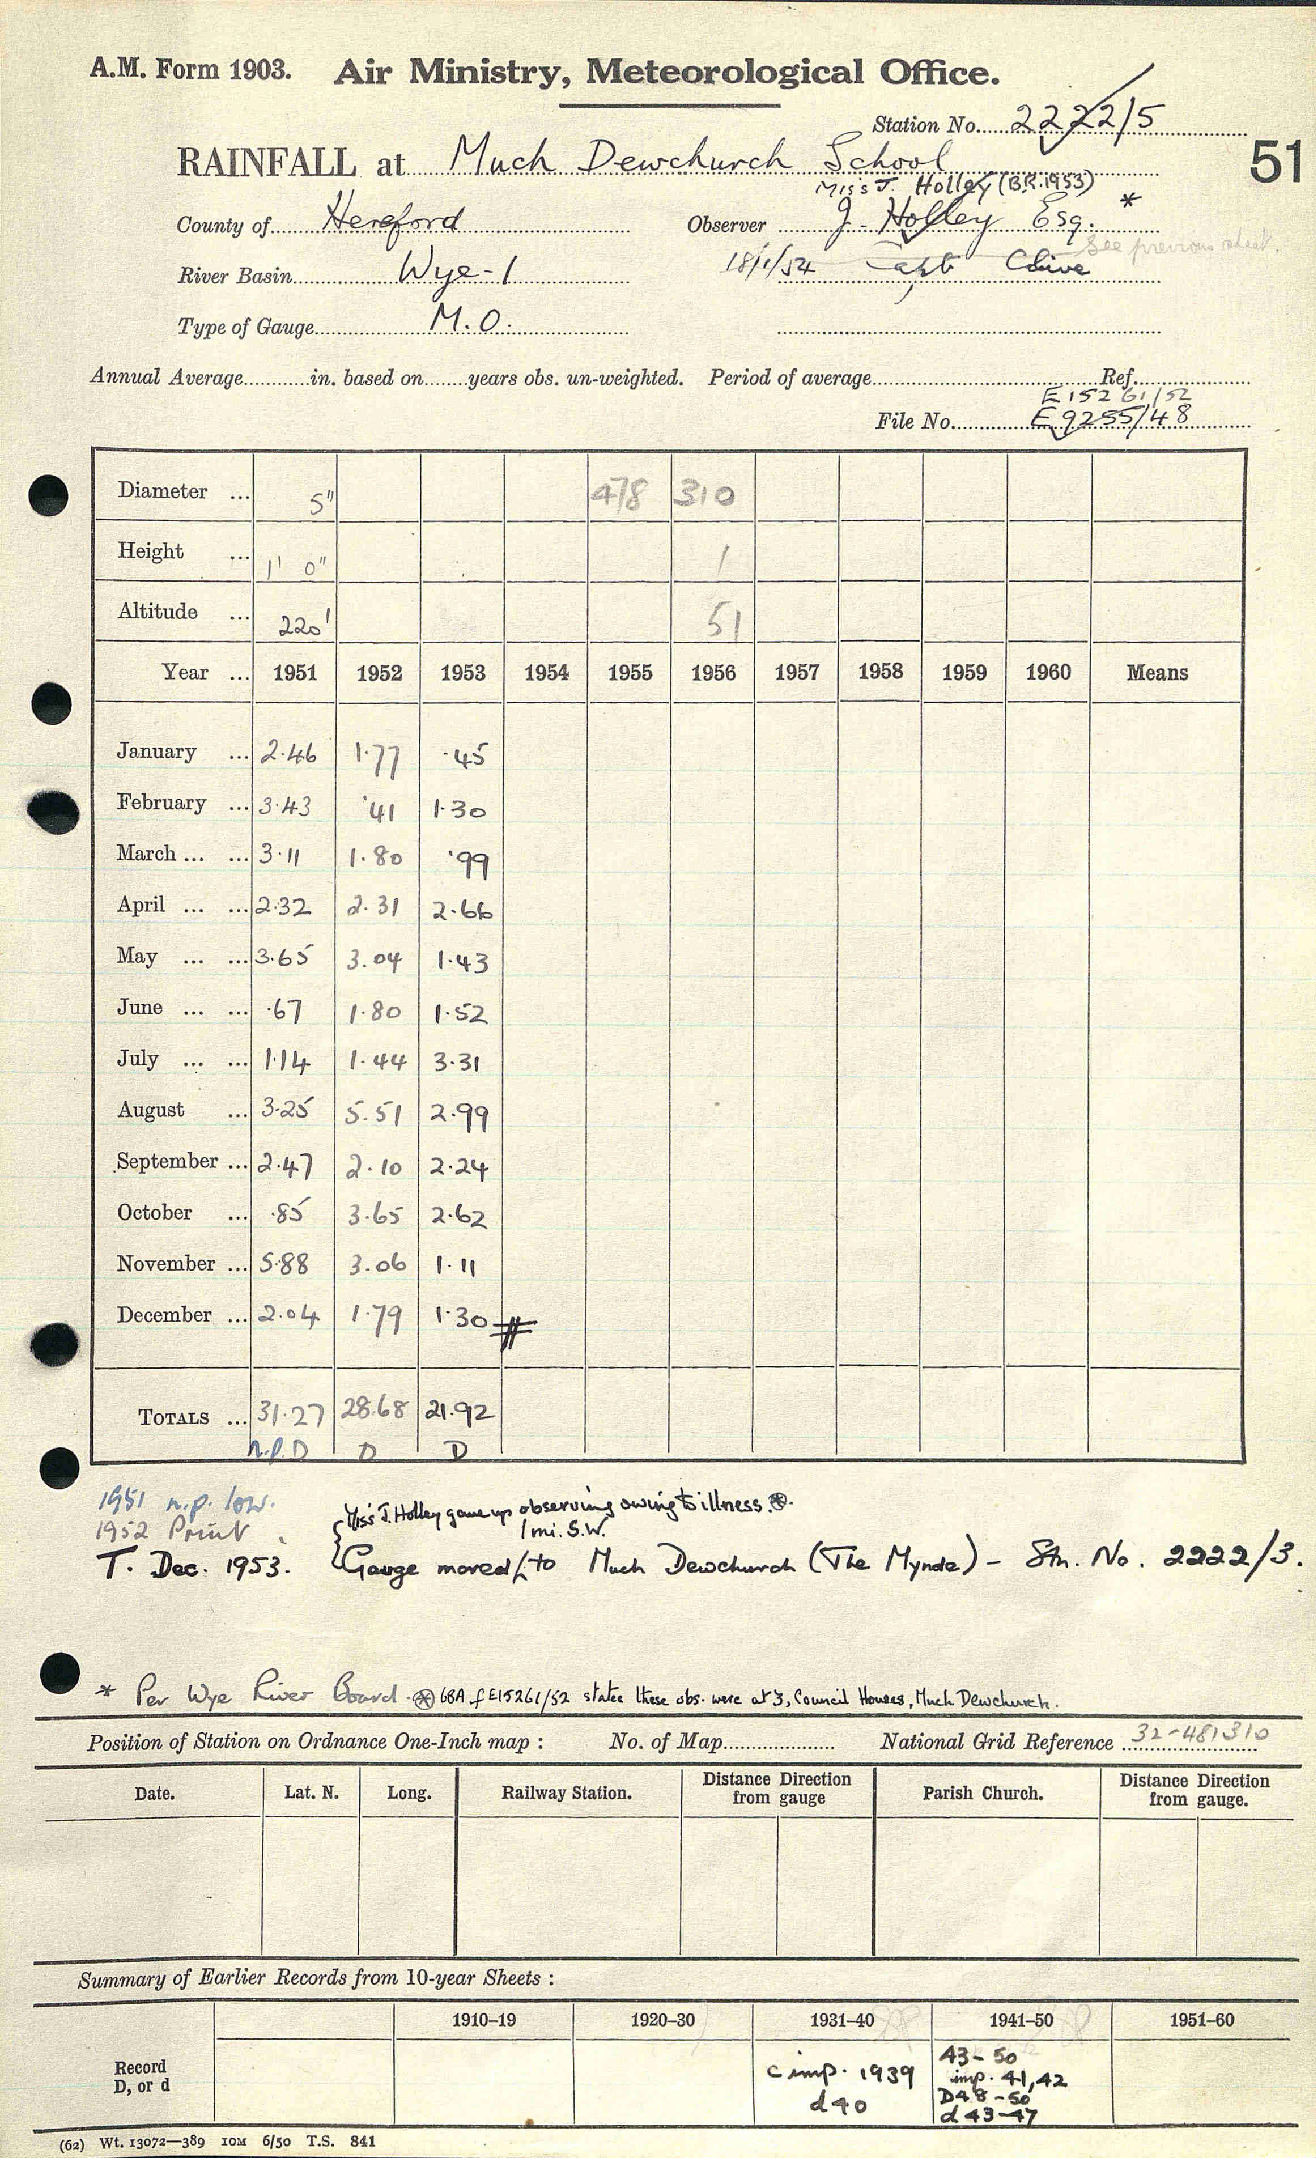 A.M. Form 1903. Air Ministry, Meteorological Office.
Station No. 2222/5
51
RAINFALL at Much Dewchurch School
Miss J. Holley (B.R. 1953)
County of Hereford Observer J. Holley Esq. *
See previous sheet.
River Basin Wye-1 18/1/54 Capt Clive
Type of Gauge M.O.
Annual Average in. based on years obs. un-weighted. Period of average Ref.
E15261/52
File No. E9255/48
Diameter ... 5" 478 310
Height ... 1' 0" 1
Altitude ... 220' 51
Year ... 1951 1952 1953 1954 1955 1956 1957 1958 1959 1960 Means
January ... 2.46 1.77 .45
February ... 3.43 .41 1.30
March ... ... 3.11 1.80 .99
April ... ... 2.32 2.31 2.66
May ... ... 3.65 3.04 1.43
June ... ... .67 1.80 1.52
July ... ... 1.14 1.44 3.31
August ... 3.25 5.51 2.99
September ... 2.47 2.10 2.24
October ... .85 3.65 2.62
November ... 5.88 3.06 1.11
December ... 2.04 1.79 1.30 #
TOTALS ... 31.27 28.68 21.92
n.p.D D D
1951 n.p. low.
Miss J. Holley gave up observing owing to illness. ⊛.
1952 Print.
1 mi. S.W.
T. Dec. 1953. Gauge moved to Much Dewchurch (The Mynde) - Stn. No. 2222/3.
* Per Wye River Board. ⊛ 68A of E15261/52 states these obs. were at 3, Council Houses, Much Dewchurch.
Position of Station on Ordnance One-Inch map : No. of Map National Grid Reference 32-481310
Date. Lat. N. Long. Railway Station. Distance Direction from gauge Parish Church. Distance Direction from gauge.
Summary of Earlier Records from 10-year Sheets :
1910–19 1920–30 1931–40 1941–50 1951–60
Record D, or d
c imp. 1939
d 40
43-50
imp. 41, 42
D48-50
d 43-47
(62) Wt. 13072—389 10M 6/50 T.S. 841